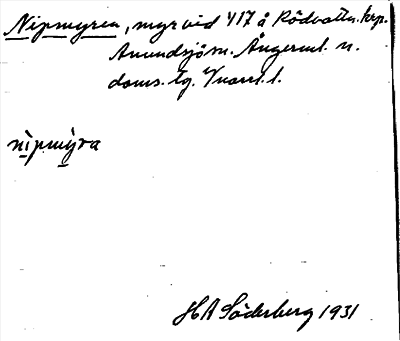 Nipmyren, myr vid 417 å Rödvattn. krp.
Anundsjö sn. Ångerml. n.
doms. tg. Vnorrl. l.
nìpmỳra
H A Söderberg 1931